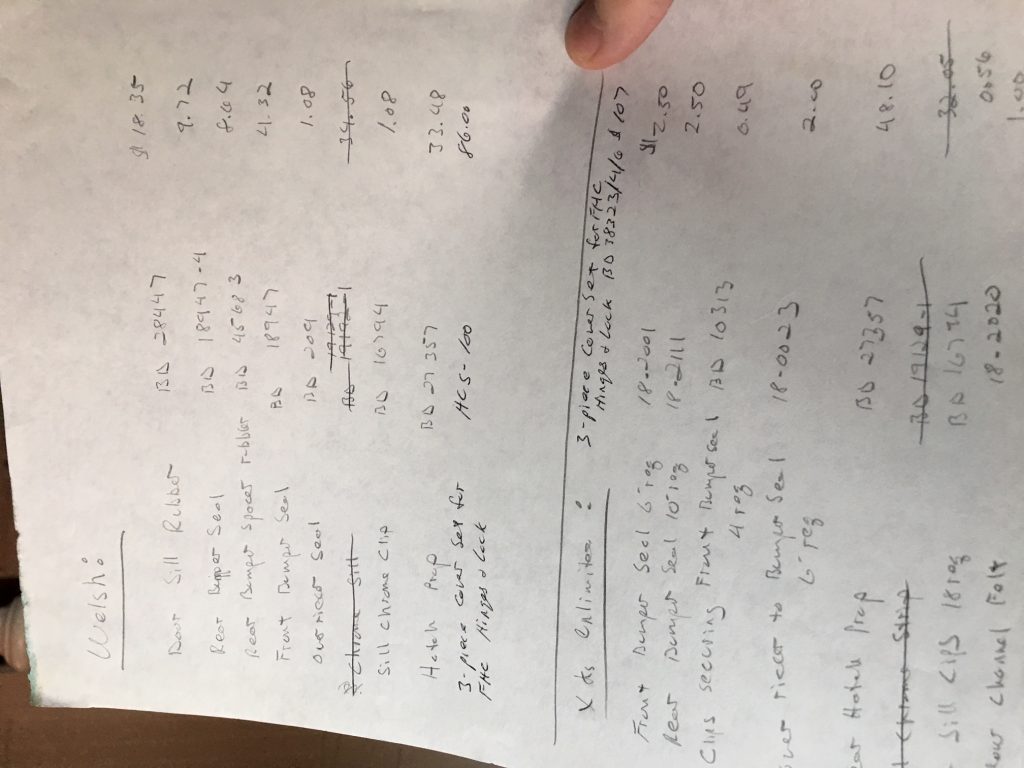 Welsh:
Door Sill Rubber BD 28447 $18.35
Rear Bumper Seal BD 18947-4 9.72
Rear Bumper Spacer rubber BD 45683 8.64
Front Bumper Seal BD 18947 4.32
over ricer seal BD-209 1.08
Chrome Sill 34.56
Sill chrome clip BD 16794 1.08
Hatch Prop BD-27357 33.48
3-piece cover set for HCS-100 86.00
FHC Hinges & Lock
XKs Unlimited: 3-piece Cover Set for FHC
Hinges & Lock BD 38323/4/6 $107
Front Bumper Seal 6 req 18-2001 $12.50
Rear Bumper Seal 10 req 18-2111 2.50
Clips securing Front Bumper seal BD 10313 0.49
4 req
over ricer to Bumper Seal 18-0023 2.00
6-req
Hatch Prop BD 27357 48.10
Chrome Strip BD 19129-1 32.05
Sill Clips 18 req BD 16794 0.56
Channel Felt 18-2020 1.00